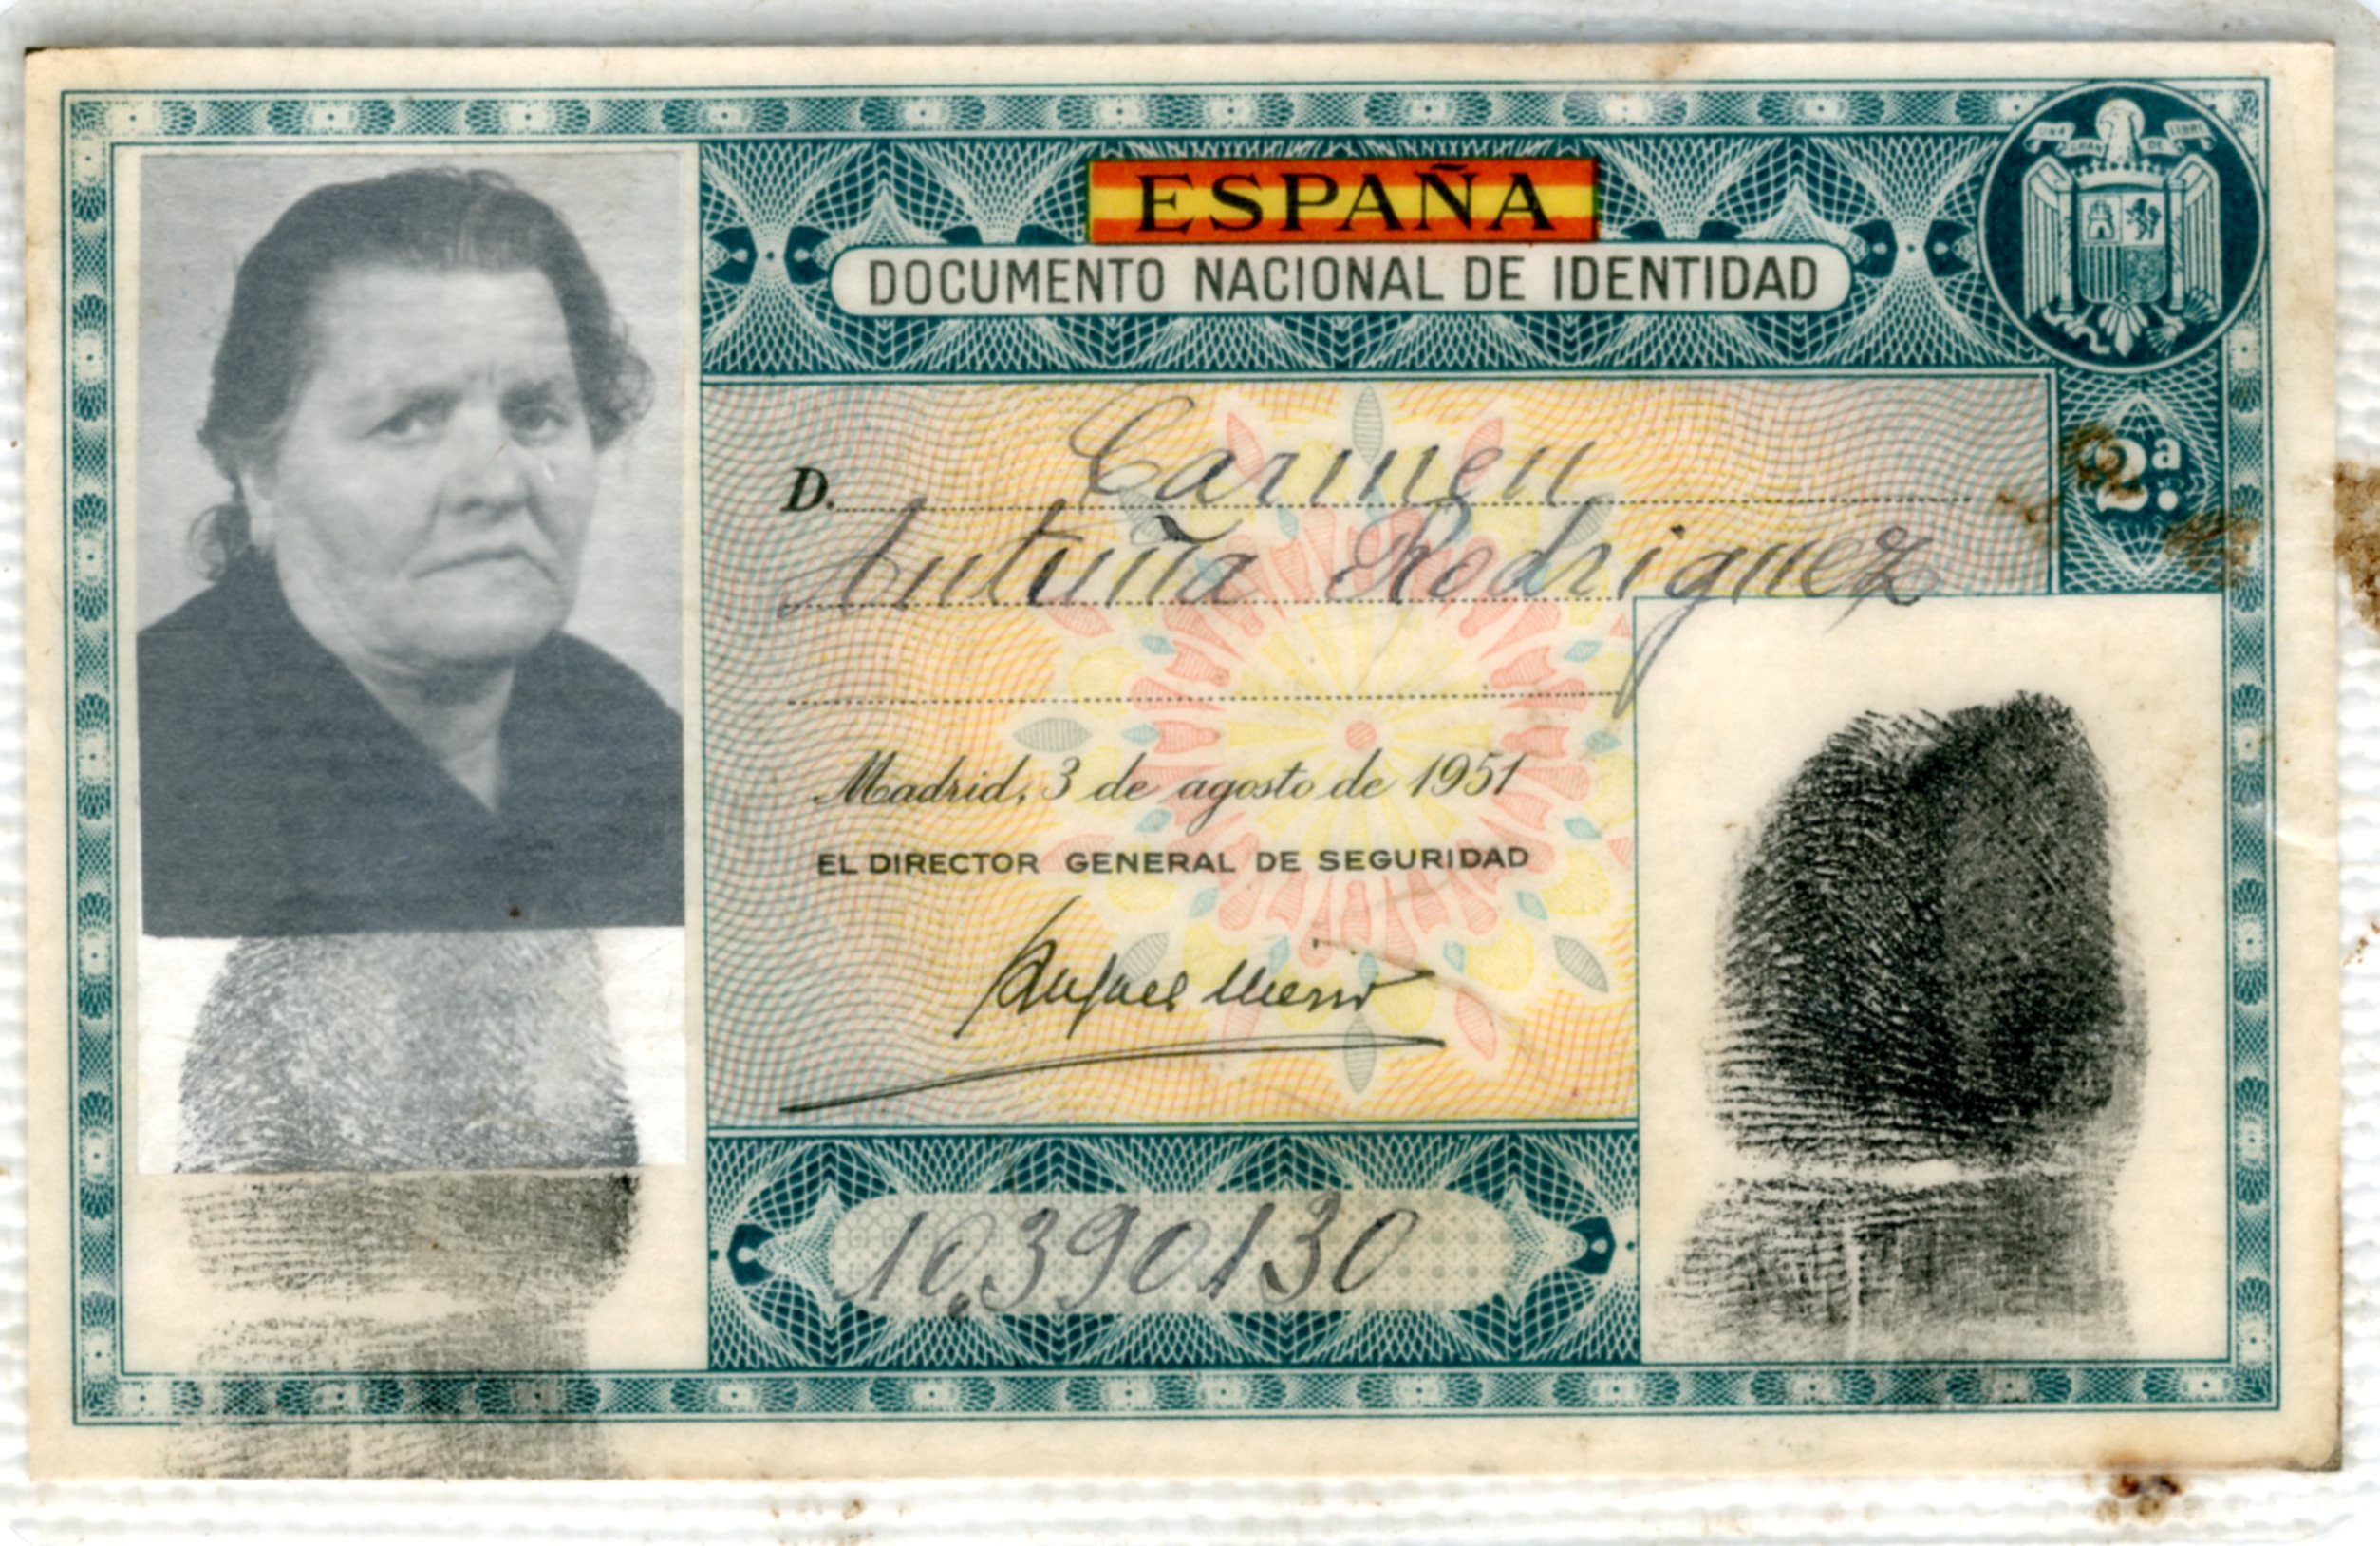 ESPAÑA
DOCUMENTO NACIONAL DE IDENTIDAD
UNA GRANDE LIBRE
2.ª
D. Carmen
Antuña Rodriguez
Madrid, 3 de agosto de 1951
EL DIRECTOR GENERAL DE SEGURIDAD
Rafael
10.390130